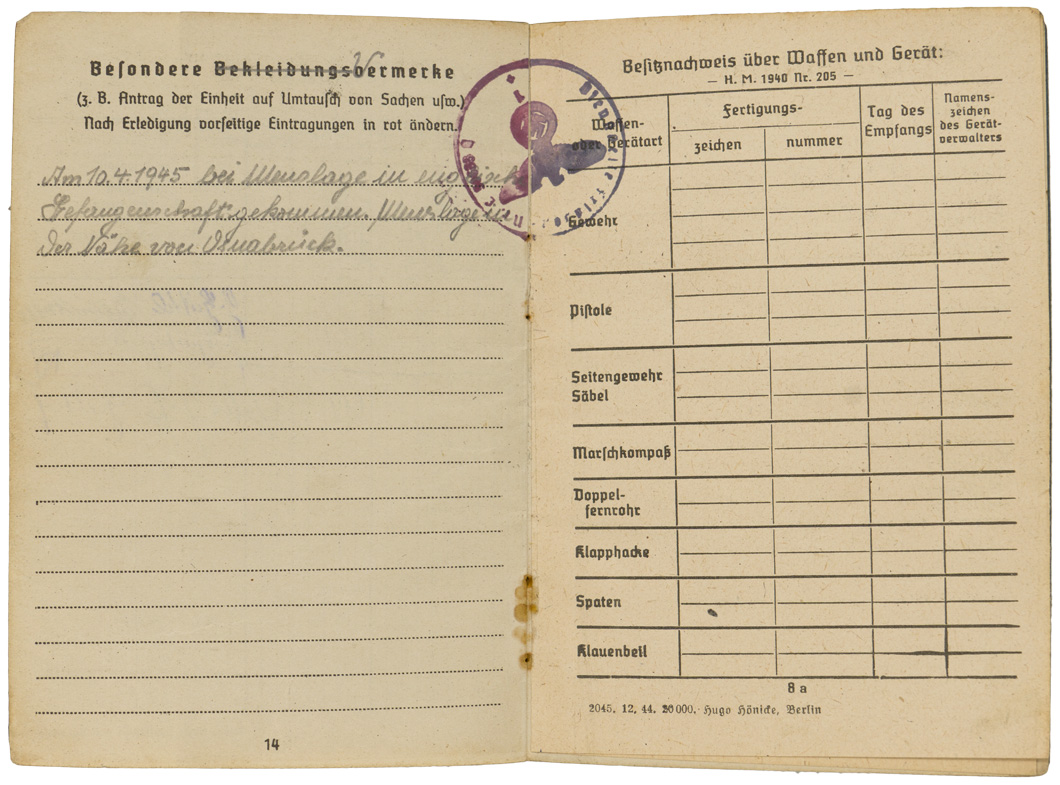 Besondere Bekleidungsvermerke
V
(z. B. Antrag der Einheit auf Umtausch von Sachen usw.)
Nach Erledigung vorseitige Eintragungen in rot ändern.
Am 10.4.1945 bei Menslage in englisch
Gefangenschaft gekommen. Menslage in
der Nähe von Osnabrück.
14
Besitznachweis über Waffen und Gerät:
— H. M. 1940 Nr. 205 —
Waffen- oder Gerätart
Fertigungs-
zeichen
nummer
Tag des Empfangs
Namens-
zeichen
des Gerät-
verwalters
Gewehr
Pistole
Seitengewehr
Säbel
Marschkompaß
Doppel-
fernrohr
Klapphacke
Spaten
Klauenbeil
8 a
2045. 12. 44. 20000. Hugo Hönicke, Berlin